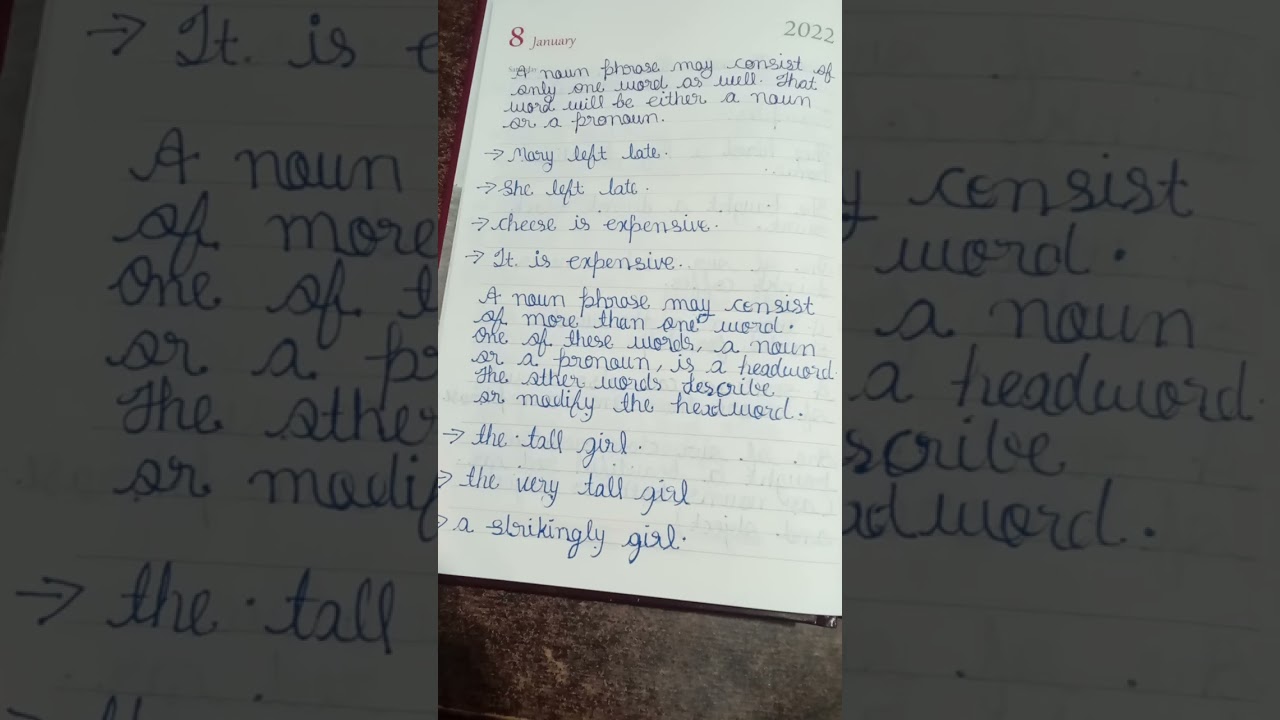 8 January 2022
A noun phrase may consist of
only one word as well. That
word will be either a noun
or a pronoun.
→ Mary left late.
→ She left late.
→ cheese is expensive.
→ It. is expensive.
A noun phrase may consist
of more than one word.
One of these words, a noun
or a pronoun, is a headword.
The other words describe
or modify the headword.
→ the tall girl.
→ the very tall girl
→ a strikingly girl.